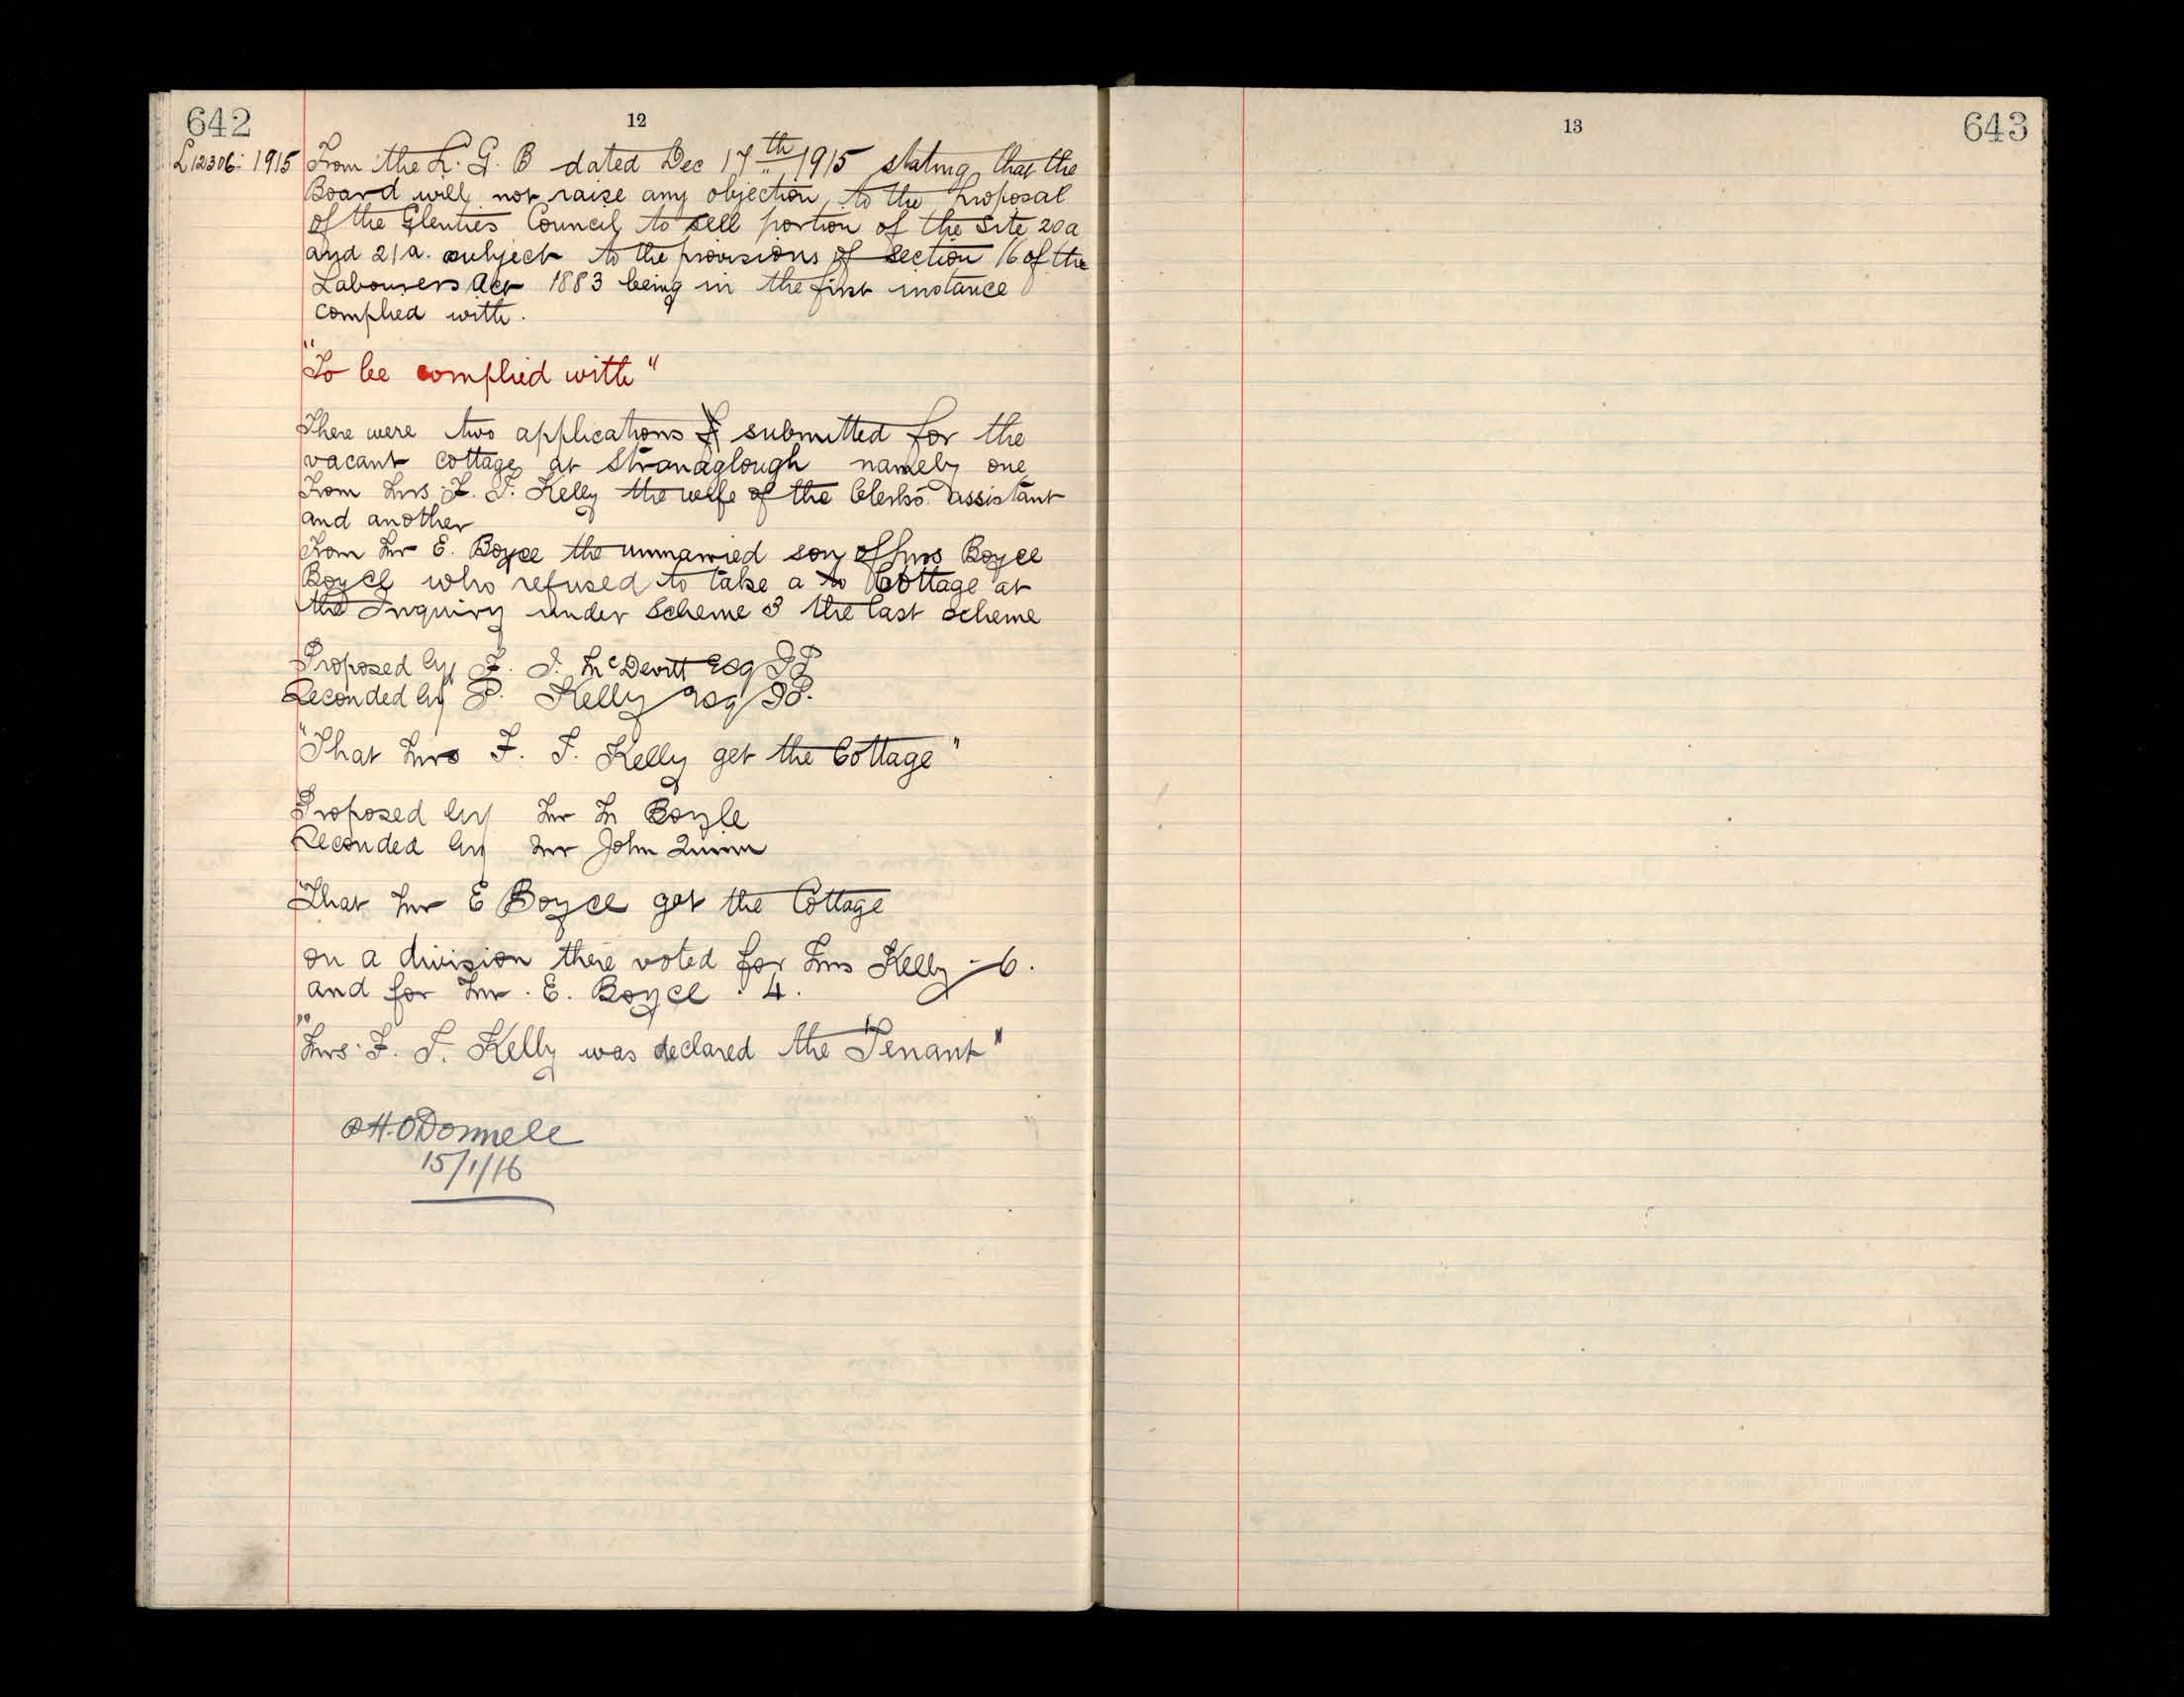 642
12
L12306: 1915 From the L. G. B dated Dec 17th 1915 stating that the
Board will not raise any objection to the proposal
of the Glenties Council to sell portion of the Site 20a
and 21a. subject to the provisions of Section 16 of the
Labourers Act 1883 being in the first instance
complied with.
"To be complied with"
There were two applications submitted for the
vacant cottage at Stranaglough namely one
From Mrs F. J. Kelly the wife of the Clerks assistant
and another
From Mr E. Boyce the unmarried son of Mrs Boyce
Boyce who refused to take a to Cottage at
the Inquiry under Scheme 3 the last scheme
Proposed by J. McDevitt Esq JP
Seconded by P. Kelly Esq JP.
"That Mrs F. J. Kelly get the Cottage"
Proposed by Mr M Boyle
Seconded by Mr John Quinn
"That Mr E Boyce get the Cottage
on a division there voted for Mrs Kelly - 6.
and for Mr. E. Boyce . 4.
"Mrs. F. J. Kelly was declared the Tenant"
H. O'Donnell
15/1/16
13
643